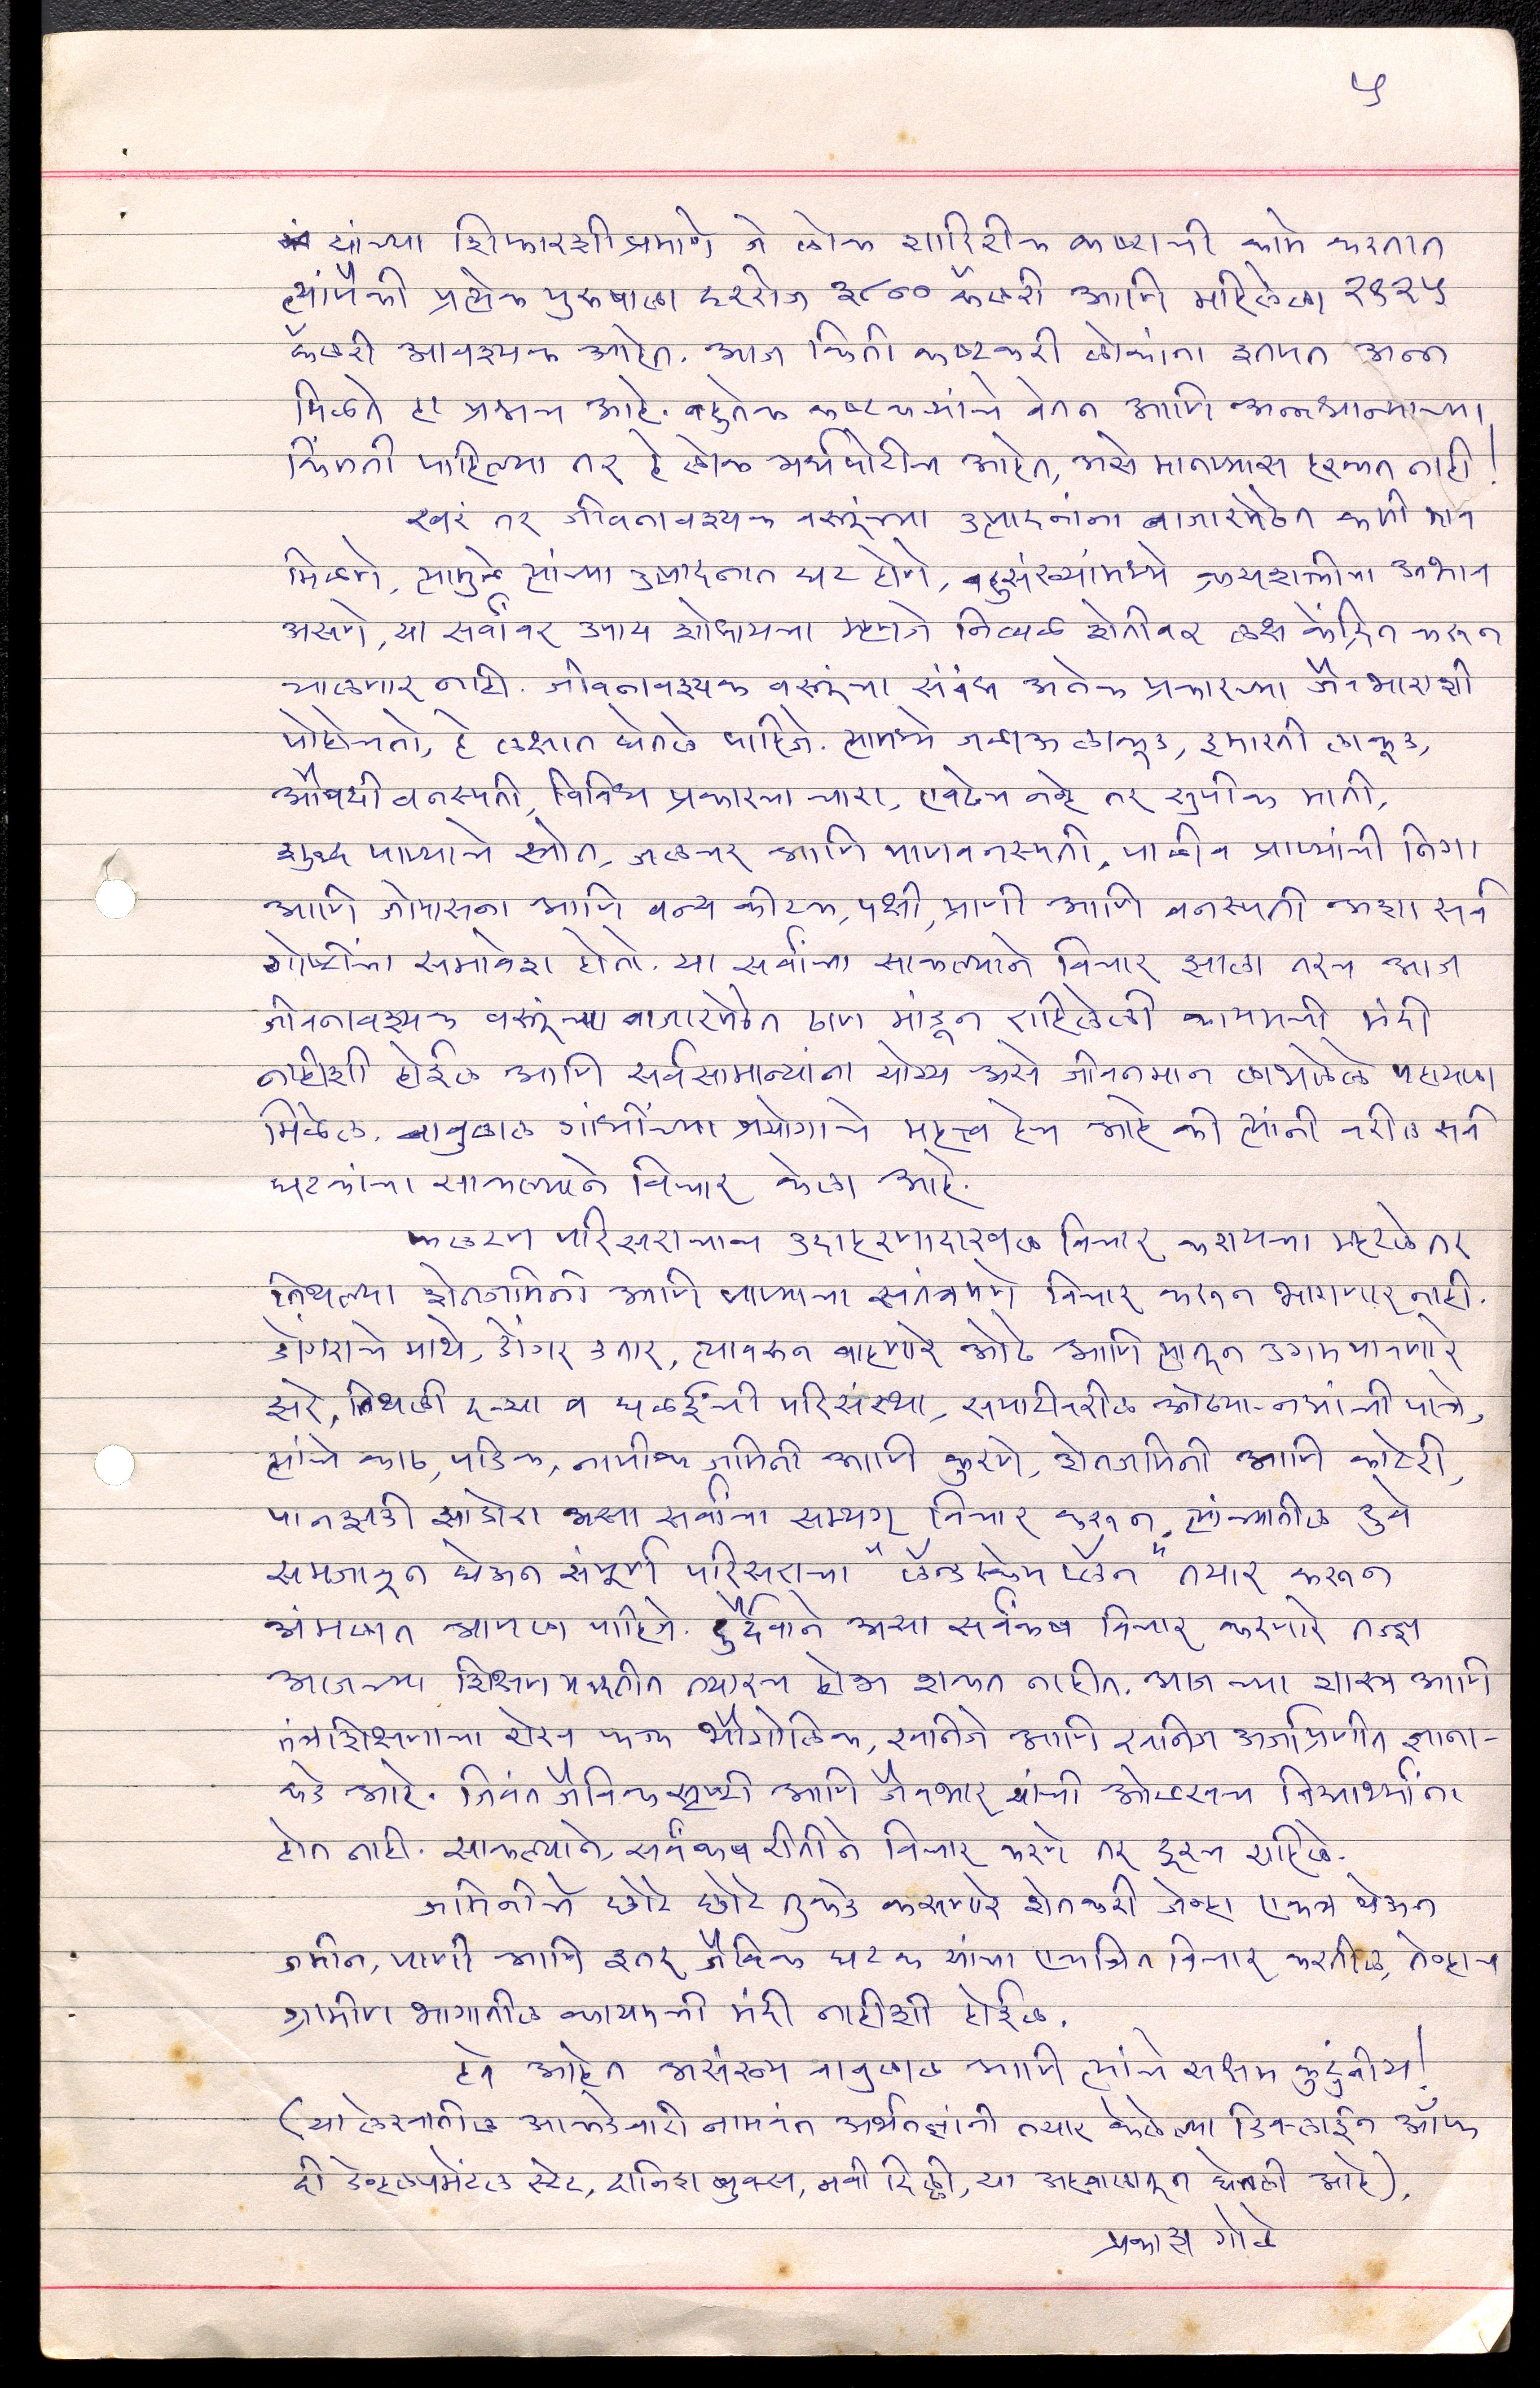 ५
यांच्या शिफारशीप्रमाणे जे लोक शारिरीक कष्टाची कामे करतात
त्यांपैकी प्रत्येक पुरुषाला दररोज ३८०० कॅलरी आणि महिलेला २९२५
कॅलरी आवश्यक आहेत. आज किती कष्टकरी लोकांना इतपत अन्न
मिळते हा प्रश्नच आहे. बहुतेक कष्टकऱ्यांचे वेतन आणि अन्नधान्याच्या
किंमती पाहिल्या तर हे लोक अर्धपोटीच आहेत, असे मानण्यास हरकत नाही!
खरं तर जीवनावश्यक वस्तूंच्या उत्पादनांना बाजारपेठेत कमी भाव
मिळणे, त्यामुळे त्यांच्या उत्पादनात घट होणे, बहुसंख्यांमध्ये क्रयशक्तीचा अभाव
असणे, या सर्वांवर उपाय शोधायचा म्हणजे निव्वळ शेतीवर लक्ष केंद्रित करून
चालणार नाही. जीवनावश्यक वस्तूंचा संबंध अनेक प्रकारच्या जैवभाराशी
पोहोचतो, हे लक्षात घेतले पाहिजे. त्यामध्ये जळाऊ लाकूड, इमारती लाकूड,
औषधी वनस्पती, विविध प्रकारचा चारा, एवढेच नव्हे तर सुपीक माती,
शुध्द पाण्याचे स्त्रोत, जलचर आणि पाणवनस्पती, पाळीव प्राण्यांची निगा
आणि जोपासना आणि वन्य कीटक, पक्षी, प्राणी आणि वनस्पती अशा सर्व
गोष्टींचा समावेश होतो. या सर्वांचा साकल्याने विचार झाला तरच आज
जीवनावश्यक वस्तूंच्या बाजारपेठेत ठाण मांडून राहिलेली कायमची मंदी
नाहीशी होईल आणि सर्वसामान्यांना योग्य असे जीवनमान लाभलेले पहायला
मिळेल. बाबुलाल गांधींच्या प्रयोगाचे महत्त्व हेच आहे की त्यांनी वरील सर्व
घटकांचा साकल्याने विचार केला आहे.
कळवण परिसराचाच उदाहरणादाखल विचार करायचा म्हटले तर
तिथल्या शेतजमिनी आणि पाण्याचा स्वतंत्रपणे विचार करून भागणार नाही.
डोंगराचे माथे, डोंगर उतार, त्यावरून वाहणारे ओढे आणि त्यातून उगम पावणारे
झरे, तिथली दऱ्या व घळईंची परिसंस्था, सपाटीवरील ओढ्या-नद्यांची पात्रे,
त्यांचे काठ, पडिक, नापीक जमिनी आणि कुरणे, शेतजमिनी आणि काटेरी,
पानझडी झाडोरा अशा सर्वांचा सम्यग् विचार करून, त्यांच्यातील दुवे
समजावून घेऊन संपूर्ण परिसराचा "लँडस्केप प्लॅन" तयार करून
अंमलात आणला पाहिजे. दुर्दैवाने असा सर्वंकष विचार करणारे तज्ज्ञ
आजच्या शिक्षण पध्दतीत तयारच होऊ शकत नाहीत. आजच्या शास्त्र आणि
तंत्रशिक्षणाचा रोख फक्त भौगोलिक, खनिजे आणि खनिज ऊर्जाप्रणीत ज्ञाना-
कडे आहे. जिवंत जैविक सृष्टी आणि जैवभार यांची ओळखच विद्यार्थ्यांना
होत नाही. साकल्याने, सर्वंकष रीतीने विचार करणे तर दूरच राहिले.
जमिनीचे छोटे छोटे तुकडे कसणारे शेतकरी जेव्हा एकत्र येऊन
जमीन, पाणी आणि इतर जैविक घटक यांचा एकत्रित विचार करतील, तेव्हाच
ग्रामीण भागातील कायमची मंदी नाहीशी होईल.
हवे आहेत असंख्य बाबुलाल आणि त्यांचे सक्षम कुटुंबीय!
(या लेखातील आकडेवारी नामवंत अर्थतज्ञांनी तयार केलेल्या डिक्लाईन ऑफ
दी डेव्हलपमेंटल स्टेट, दानिश बुक्स, नवी दिल्ली, या अहवालातून घेतली आहे).
प्रकाश गोळे